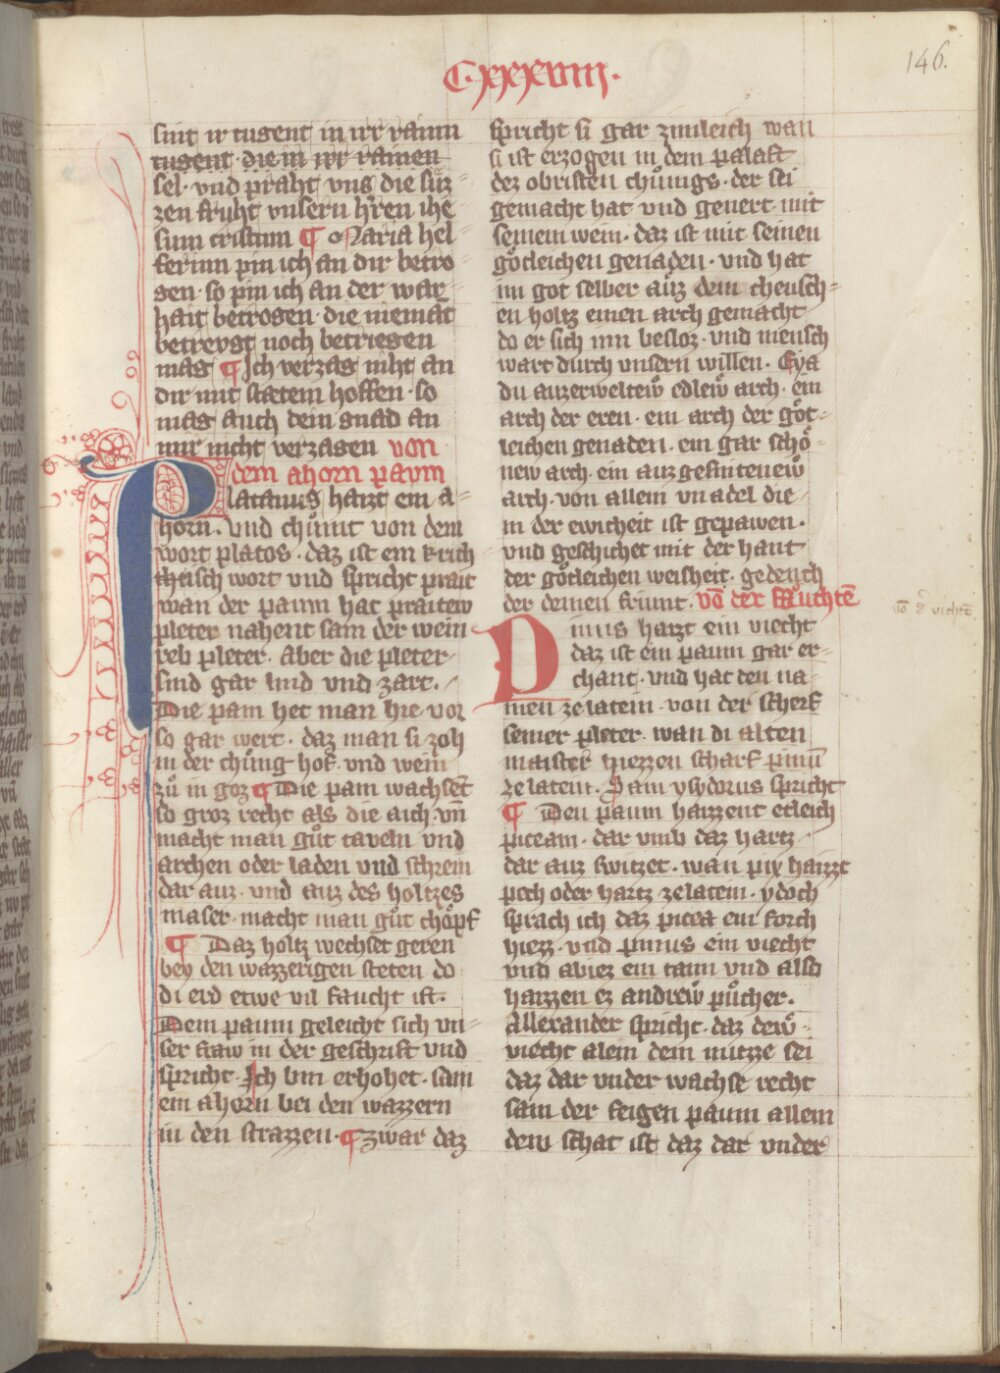 C·xxxxviii·
146.
sint ir tugent in irr rainn
tugent die in irr rainen
sel· vnd praht vns die suͤz
zen fruht vnsern h'ren ihe
sum cristum ¶ O Maria hel
ferinn pin ich an dir betro
gen· so pin ich an der war
hait betrogen· die niemat
betreugt noch betriegen
mag ¶ Ich verzag niht an
dir mit stætem hoffen· so
mag auch dein gnad an
mir nicht verzagen von
dem ahorn paum
Platanus haizt ein a-
horn· Vnd chuͤmt von dem
wort platos· daz ist ein krich
isch wort vnd spricht prait
wan der paum hat praitew
pleter nahent sam der wein
reb pleter· Aber die pleter
sind gar lind vnd zart·
Die pam het man hie vor
so gar wert· daz man si zoh
in der chuͤnig hof· vnd wein
zuͦ in goz ¶ Die pam wachsēt
so groz recht als die aich· vn̄
macht man guͦt taveln vnd
archen oder laden vnd schrein
dar auz· vnd auz des holtzes
maser· macht man guͦt choͤpf
¶ Daz holtz wechset geren
bey den wazzerigen steten do
di erd etwe vil faucht ist·
Dem paum geleicht sich vn
ser fraw in der geschrift vnd
spricht· Ich bin erhohet· sam
ein ahorn bei den wazzern
in den strazzen· ¶ zwar daz
spricht si gar zimleich wan
si ist erzogen in dem palast
dez obristen chuͤnigs· der sei
gemacht hat vnd geuert mit
seinem wein· daz ist mit seinen
goͤtleichen genaden· vnd hat
im got selber auͤz dem cheusch
en holtz einen arch gemacht
do er sich inn besloz· vnd mensch
wart durch vnsern willen· Eya
du auzerweltew̓ edlew̓ arch· ein
arch der eren· ein arch der goͤt
leichen genaden· ein gar schoͤ
new arch· ein auzgesintenew̓
arch· von allem vnadel die
in der ewicheit ist gepawen·
vnd geschichet mit der hant
der goͤtleichen weisheit· gedench
der deinen friunt· vō der faͤuchtē
vō d' viechtē
Pinus haizt ein viecht
daz ist ein paum gar er
chant· vnd hat den na
men ze latein· von der scherf
seiner pleter· wan di alten
maister hiezzen scharf pinū
ze latein· Sam ysydorus spricht
¶ Den paum haizzent etleich
piceam· dar vmb daz hartz
dar auz switzet· wan pix haizzt
pech oder hartz ze latein· ydoch
sprach ich daz picea ein forch
hiezz· vnd pinus ein viecht
vnd abiez ein tann vnd also
haizzen ez andrew̓ puͤcher·
Allexander spricht· daz dew̓
viecht alein dem nutzze sei
daz dar vnder wachse recht
sam der feigen paum allem
dem schat ist daz dar vnder